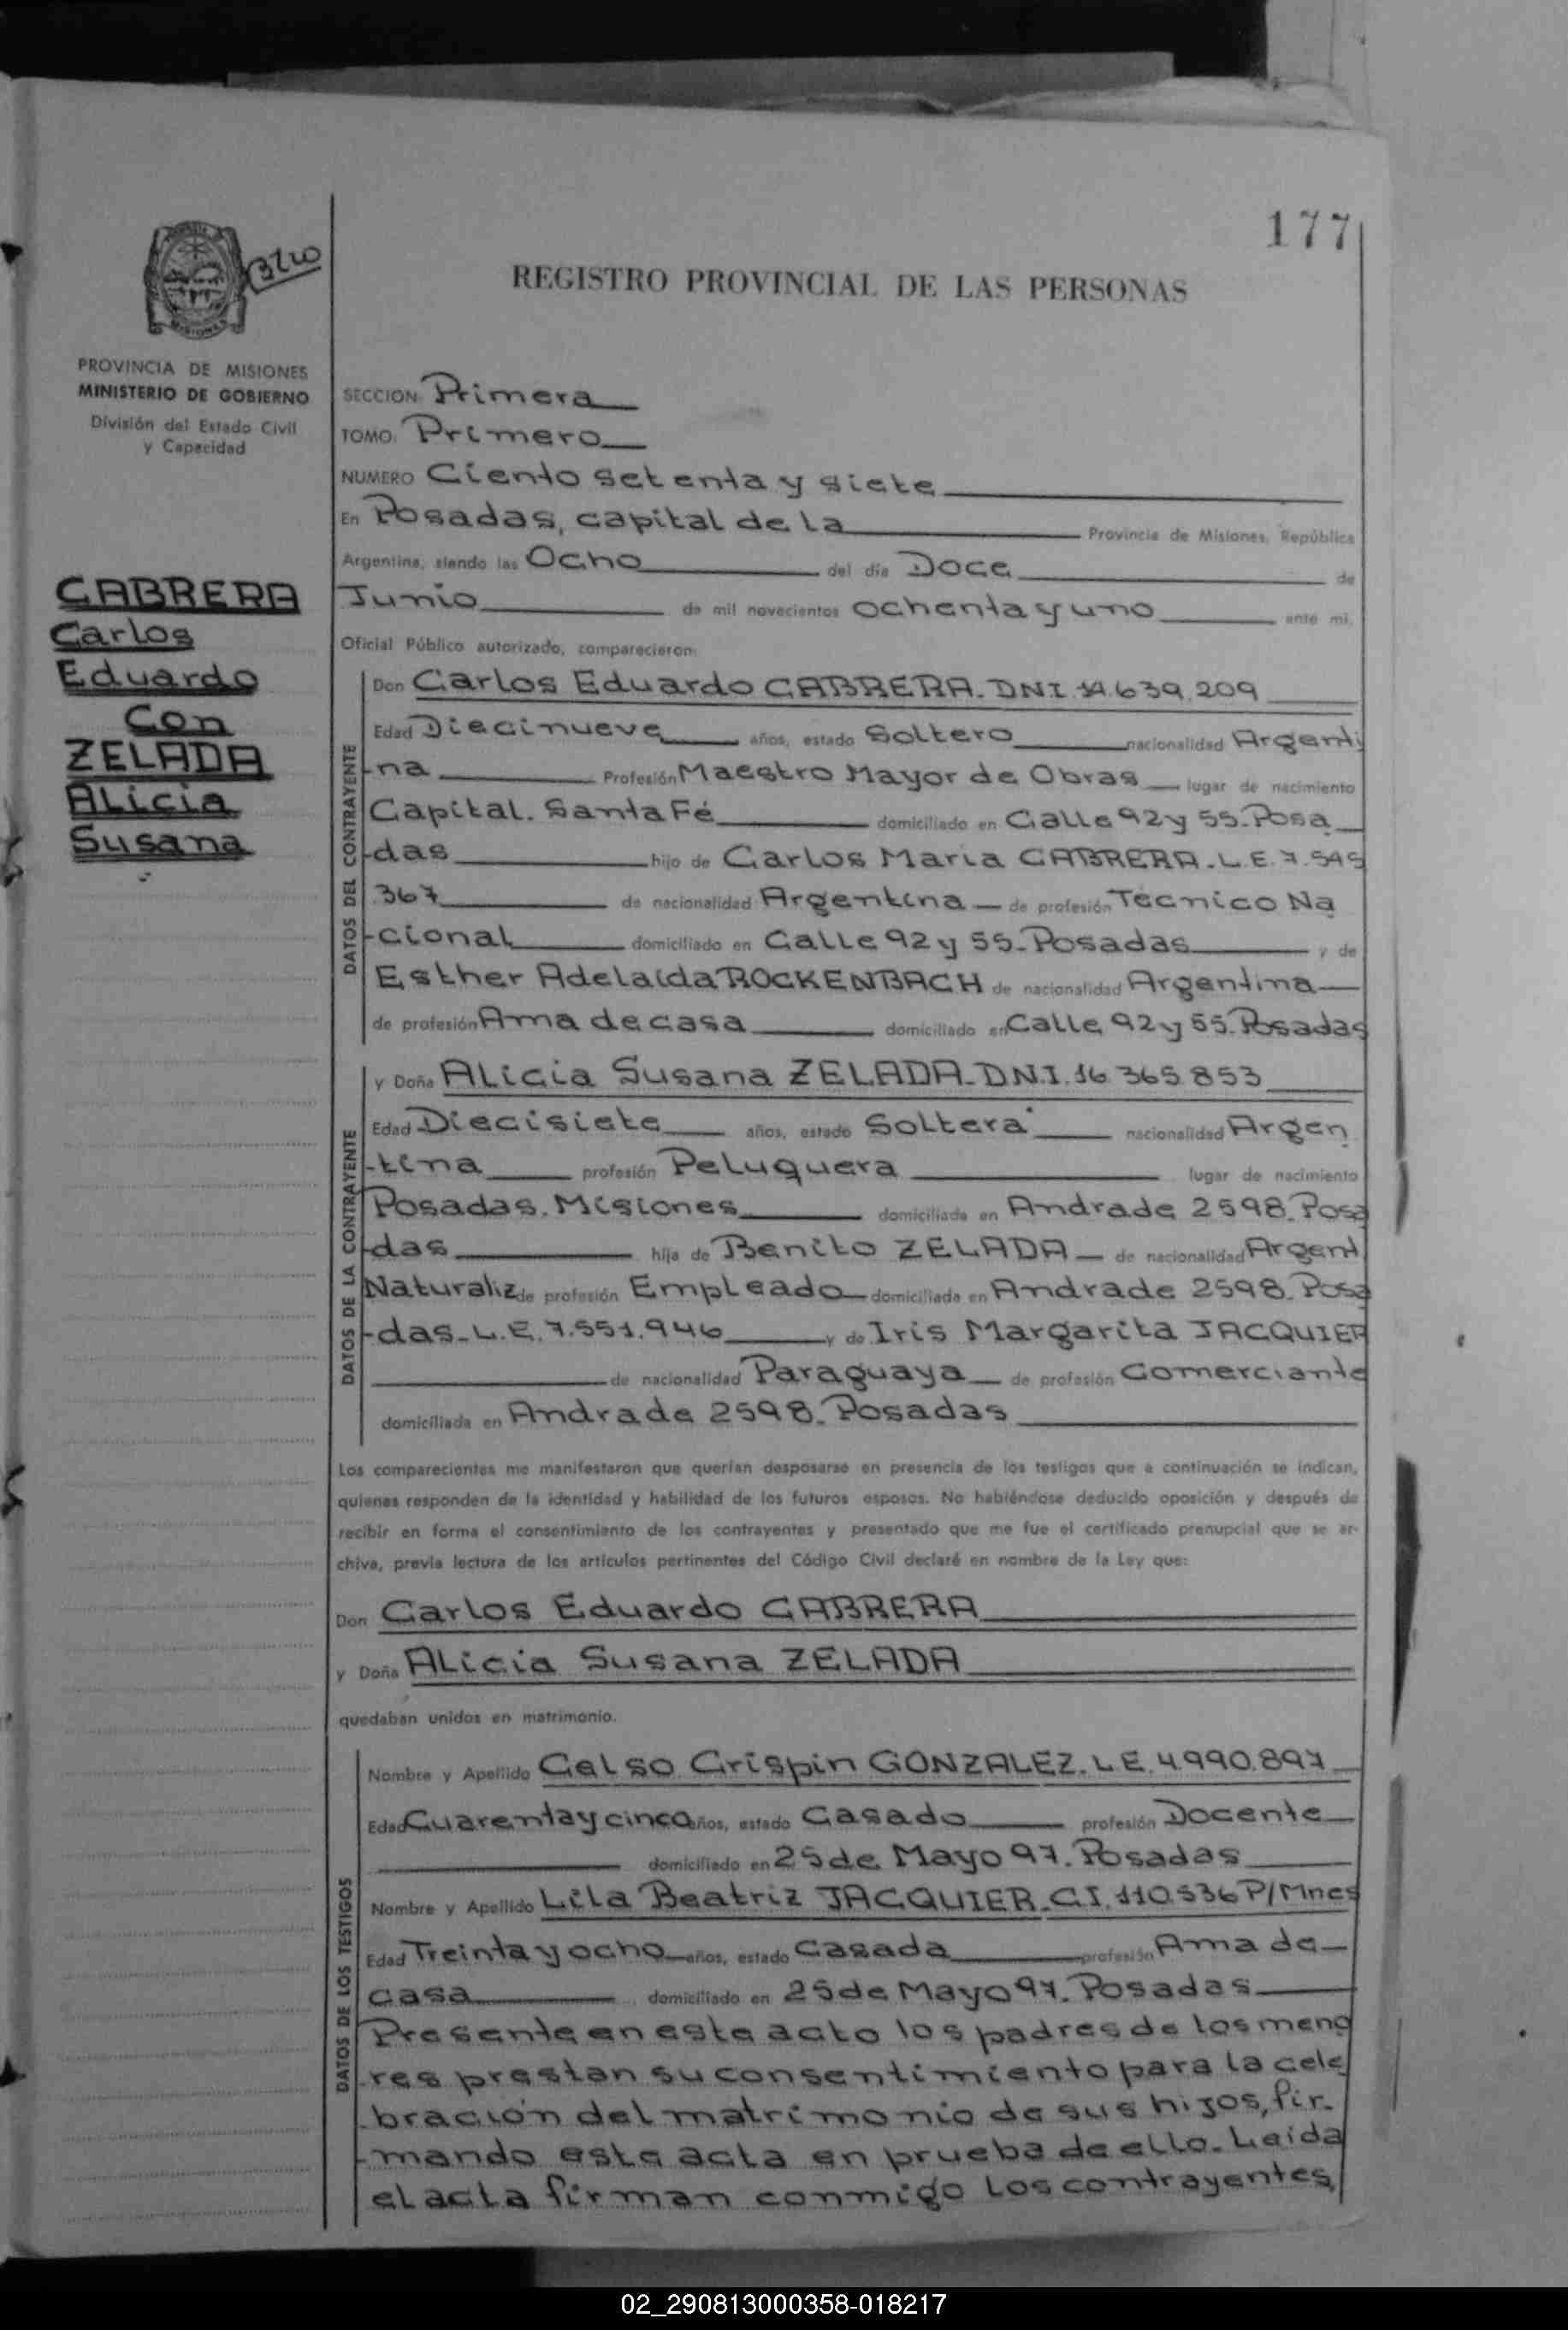 177
REGISTRO PROVINCIAL DE LAS PERSONAS
MISIONES
PROVINCIA DE MISIONES
MINISTERIO DE GOBIERNO
División del Estado Civil
y Capacidad
CABRERA
Carlos
Eduardo
Con
ZELADA
Alicia
Susana
SECCION Primera
TOMO Primero
NUMERO Ciento setenta y siete
En Posadas, capital de la Provincia de Misiones, República
Argentina, siendo las Ocho del día Doce de
Junio de mil novecientos ochenta y uno ante mí,
Oficial Público autorizado, comparecieron:
DATOS DEL CONTRAYENTE
Don Carlos Eduardo CABRERA. DNI 14.639.209
Edad Diecinueve años, estado Soltero nacionalidad Argenti
na Profesión Maestro Mayor de Obras lugar de nacimiento
Capital. Santa Fé domiciliado en Calle 92 y 55. Posa
das hijo de Carlos María CABRERA. L.E. 7.545
.367 de nacionalidad Argentina de profesión Técnico Na
cional domiciliado en Calle 92 y 55. Posadas y de
Esther Adelaida ROCKENBACH de nacionalidad Argentina
de profesión Ama de casa domiciliado en Calle 92 y 55. Posadas
DATOS DE LA CONTRAYENTE
y Doña Alicia Susana ZELADA. D.N.I. 16.365.853
Edad Diecisiete años, estado Soltera nacionalidad Argen
tina profesión Peluquera lugar de nacimiento
Posadas. Misiones domiciliada en Andrade 2598. Posa
das hija de Benito ZELADA de nacionalidad Argent
Naturaliz de profesión Empleado domiciliado en Andrade 2598. Posa
das. L.E. 7.551.946 y de Iris Margarita JACQUIER
de nacionalidad Paraguaya de profesión Comerciante
domiciliada en Andrade 2598. Posadas
Los comparecientes me manifestaron que querían desposarse en presencia de los testigos que a continuación se indican,
quienes responden de la identidad y habilidad de los futuros esposos. No habiéndose deducido oposición y después de
recibir en forma el consentimiento de los contrayentes y presentado que me fue el certificado prenupcial que se ar-
chiva, previa lectura de los artículos pertinentes del Código Civil declaré en nombre de la Ley que:
Don Carlos Eduardo CABRERA
y Doña Alicia Susana ZELADA
quedaban unidos en matrimonio.
DATOS DE LOS TESTIGOS
Nombre y Apellido Celso Crispín GONZALEZ. L.E. 4.990.897
Edad Cuarenta y cinco años, estado Casado profesión Docente
domiciliado en 25 de Mayo 97. Posadas
Nombre y Apellido Lila Beatriz JACQUIER. C.I. 110.536 P/Mnes
Edad Treinta y ocho años, estado Casada profesión Ama de
casa domiciliado en 25 de Mayo 97. Posadas
Presente en este acto los padres de los meno
res prestan su consentimiento para la cele
bración del matrimonio de sus hijos, fir-
mando este acta en prueba de ello. Leída
el acta firman conmigo los contrayentes,
02_290813000358-018217